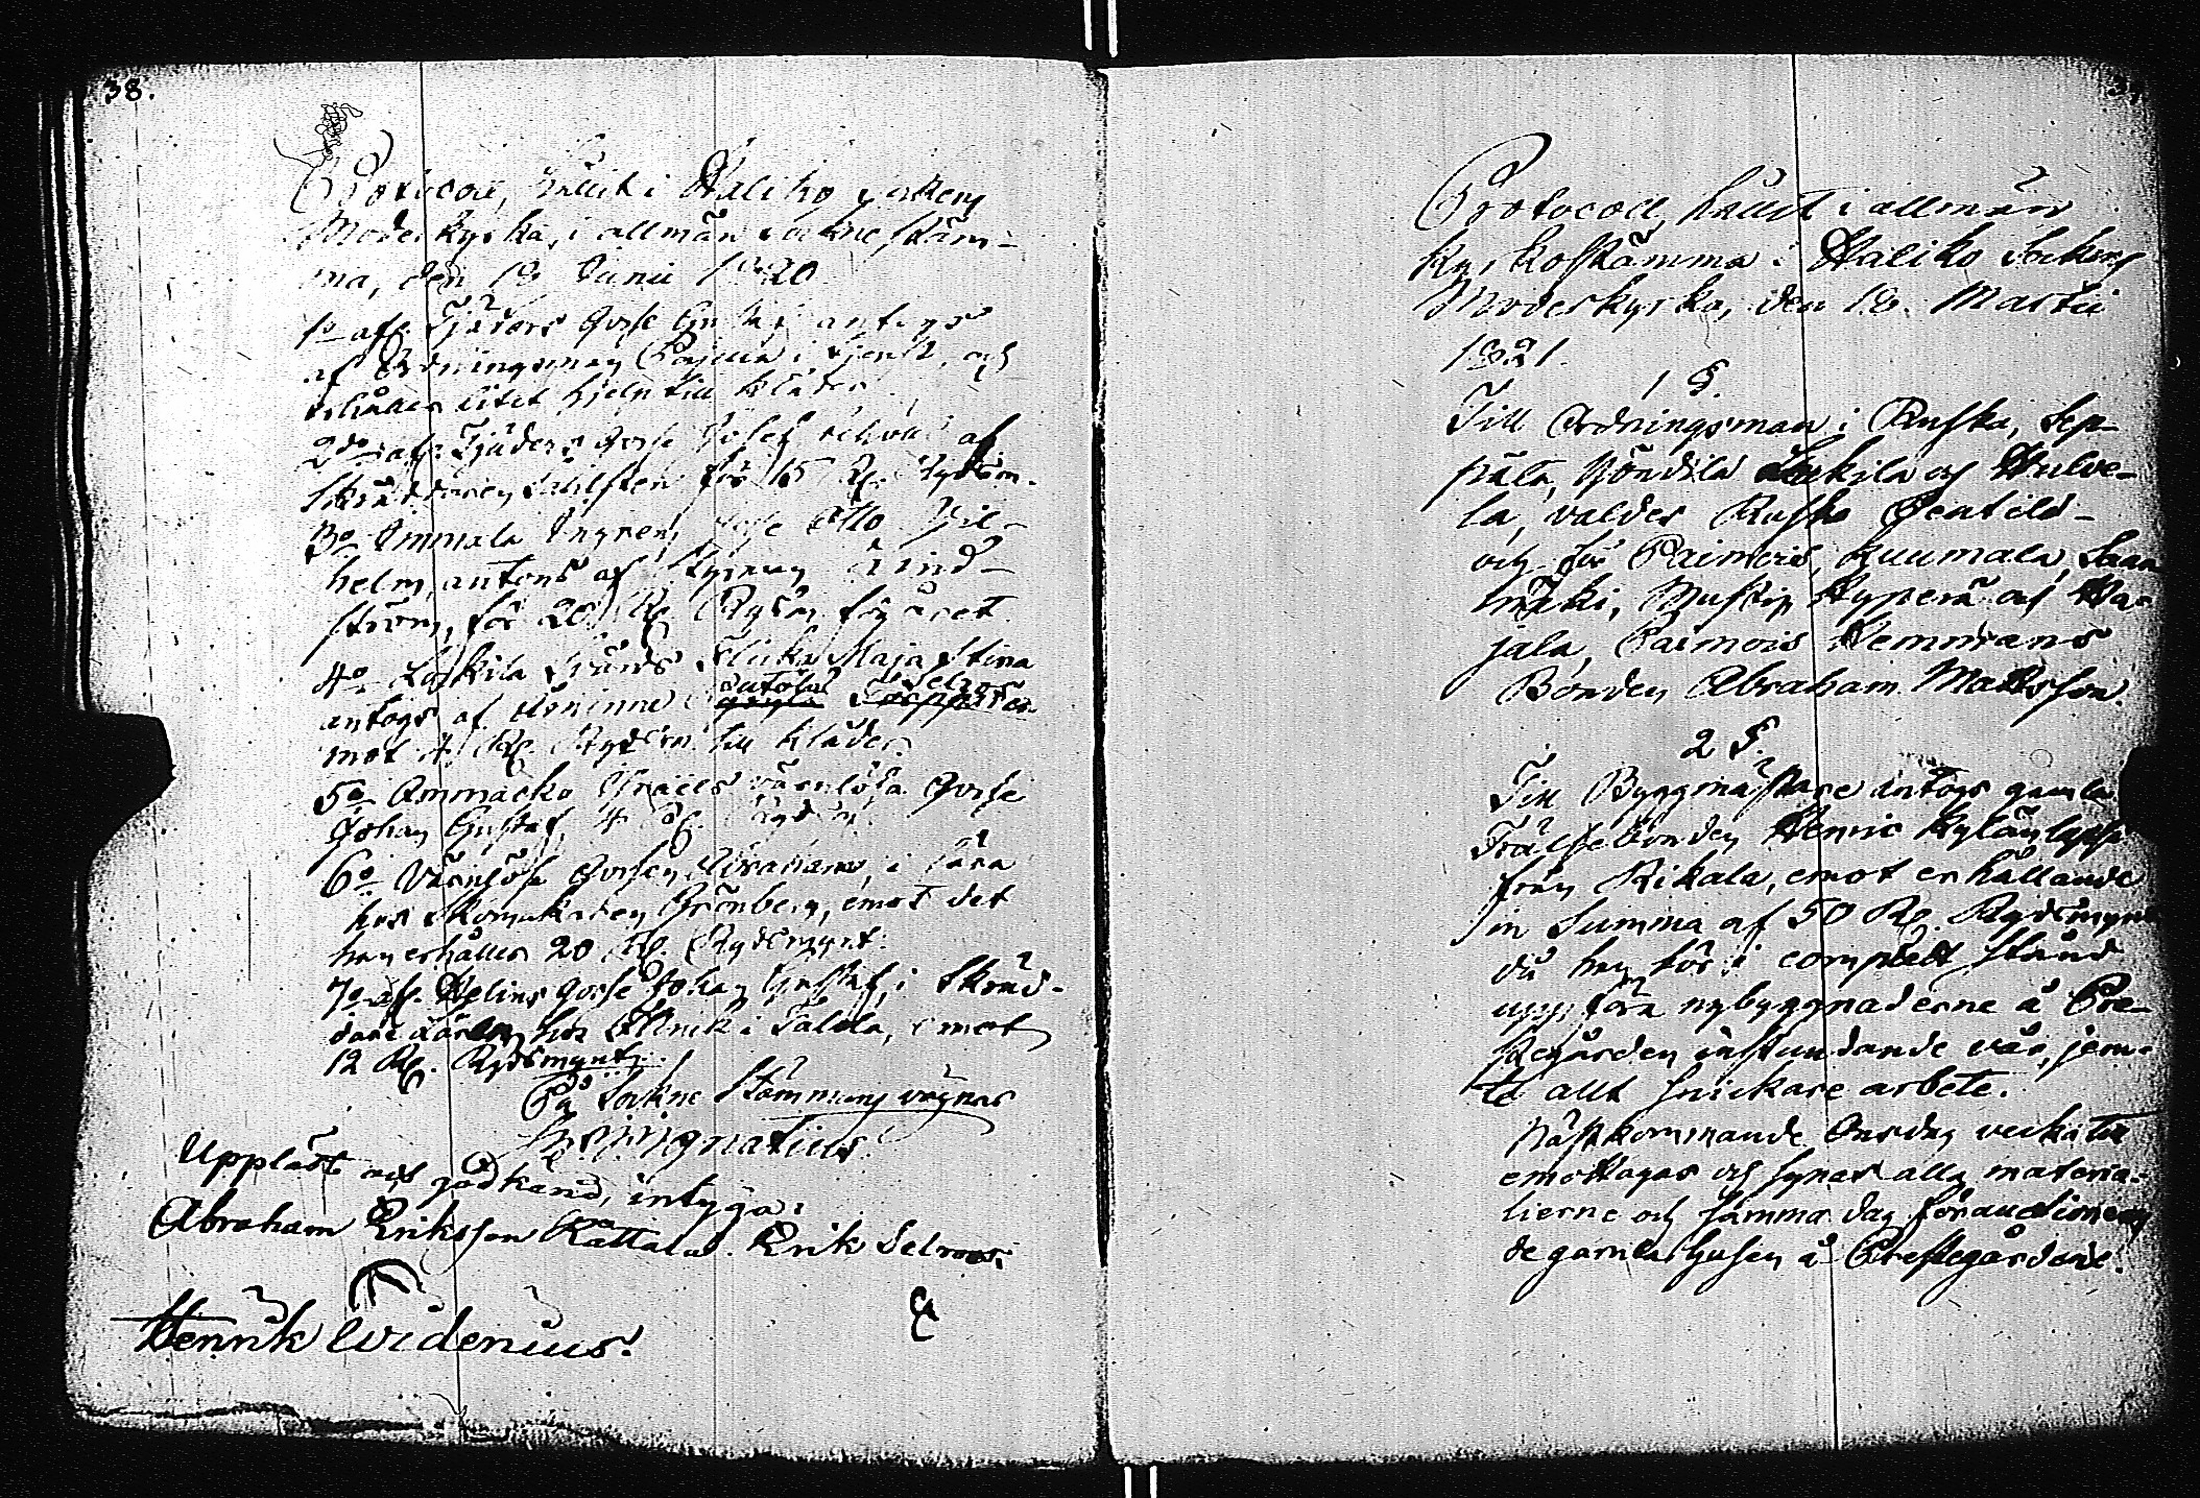 38.
Protocoll, hållit i Haliko sockens
Moderkyrka, i allmän Sockne stäm-
ma, den 18 Junii 1820.
1o afl. Tjäders Gosse Gustaf antogs
af Ordningsman Pajula i tjenst, och
erhåller litet hjelp till kläder.
2do afl. Tjäders Gosse Josef af
Skräddaren för 15 Rg. Rydsm.
3o Immala Gosse Otto Vil-
helm, antogs af Lind-
ström, för 20 Rg. Rydsm, för året.
4o Laskila Flicka Maja Stina
antogs af
mot 4 Rg. Rydsm. till kläder.
5o Ammäcko värnlösa Gosse
Johan Gustaf, 4 Rg. Rydsm.
6o Värnlöse Gossen Abraham, i lära
hos Skomakaren Grönberg, emot det
han erhåller 20 Rg. Rydsmynt.
7o afl. Helins Gosse Johan Gustaf, i Skräd-
dare läran hos i emot
12 Rg. Rydsmynt.
På Sockne Stämmans vägnar
Ignatius.
Uppläst och godkänd, intyga:
Abraham Eriksson Rattala. Erik Selroos.
Henrik Widenius.
Protocoll, hållit i allmän
kyrkostämma i Haliko Sockens
Moderkyrka, den 18. Martii
1821.
1 §.
Till Ordningsman i Ruska, Sep-
pälä, Yöntilä Laskila och Hulve-
la, valdes Rusko
och för Paimois, Kuumala, Saan
mäki, Mustio, Hyperä och Ha-
jala, Paimois Hemmans
Bonden Abraham Mattsson.
2 §.
Till Byggmästare antogs gamla
Frälsebonden Henric
från Rikala, emot erhållande
en Summa af 50 Rg. Rydsmynt
då han bör i complett stånd
uppföra nybyggnaderne å Pre-
stegården instundande vår, jem-
te allt Snickare arbete.
Nästkommande Onsdag vecka till
emottagas och synas alla materia-
lierne och samma dag förauctioneras
de gamla husen å Prestegården.